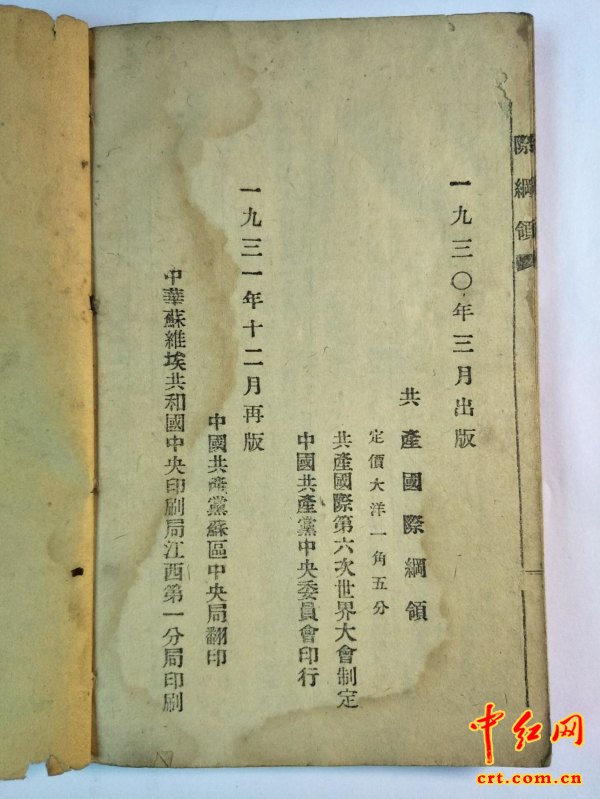 際綱領
一九三〇年三月出版
共產國際綱領
定價大洋一角五分
共產國際第六次世界大會制定
中國共產黨中央委員會印行
一九三一年十二月再版
中國共產黨蘇區中央局翻印
中華蘇維埃共和國中央印刷局江西第一分局印刷
中红网
crt.com.cn